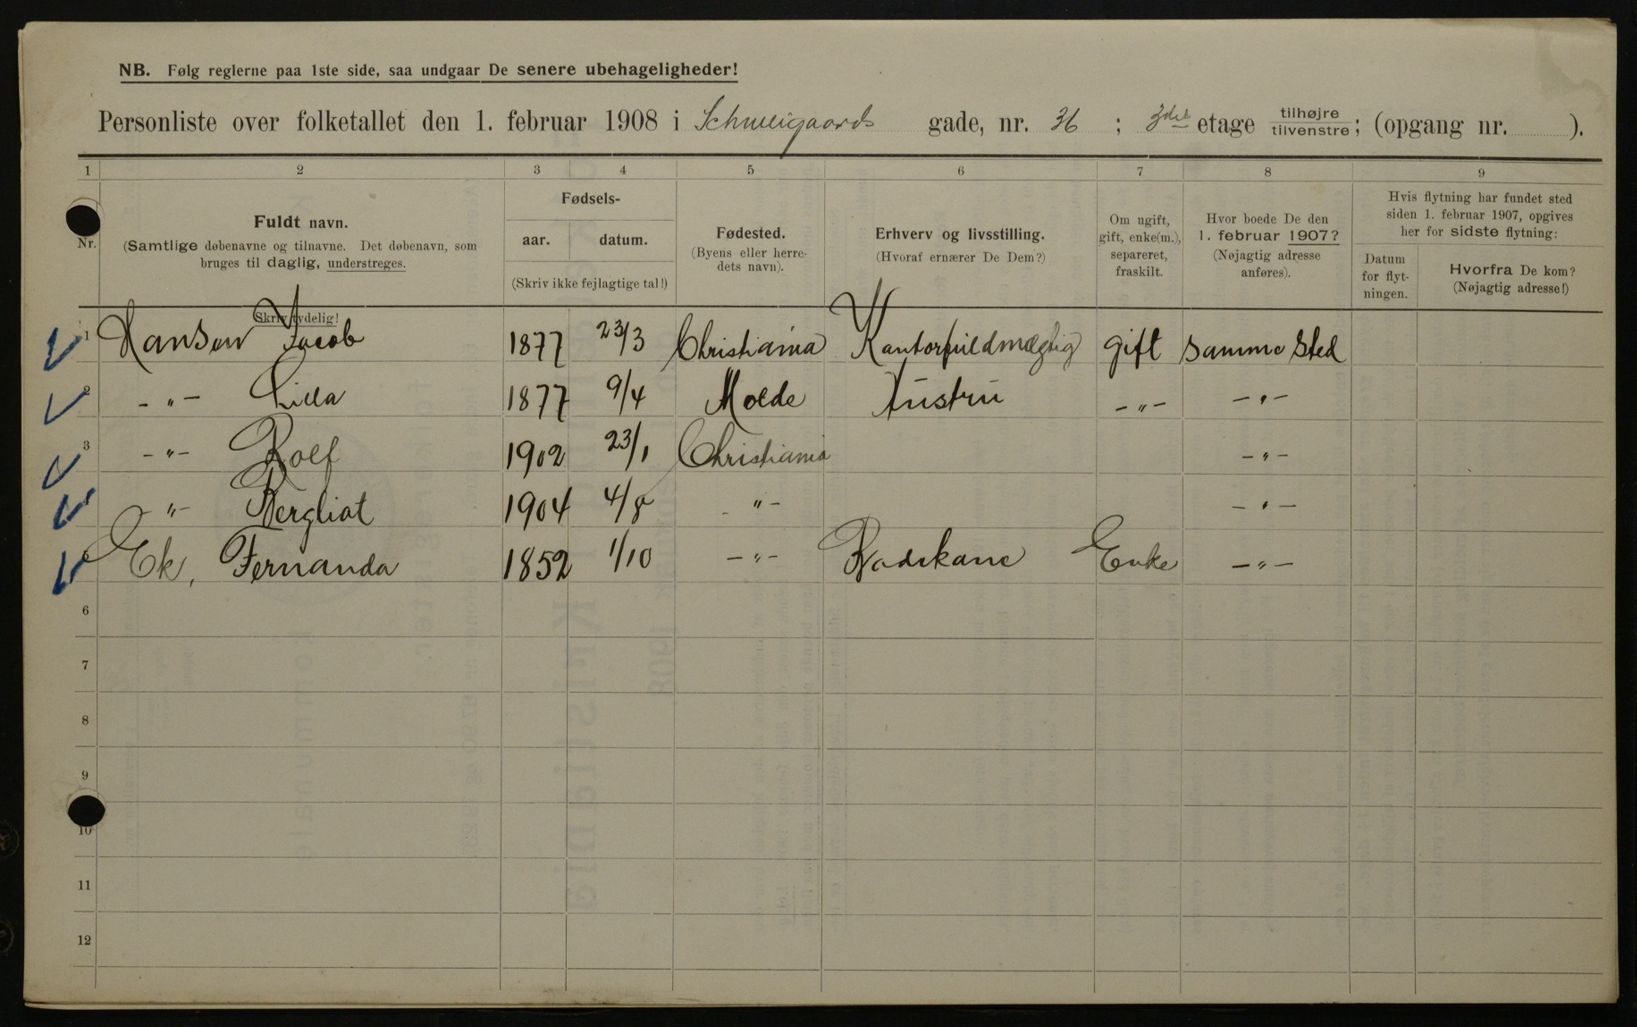 NB. Følg reglerne paa 1ste side, saa undgaar De senere ubehageligheder!
Personliste over folketallet den 1. februar 1908 i Schweigaards gade, nr. 36 ; 3die etage tilhøjre tilvenstre; (opgang nr. ).
1 2 3 4 5 6 7 8 9
Nr.
Fuldt navn.
(Samtlige døbenavne og tilnavne. Det døbenavn, som
bruges til daglig, understreges.
Skriv tydelig!
Fødsels-
aar. datum.
(Skriv ikke fejlagtige tal!)
Fødested.
(Byens eller herre-
dets navn).
Erhverv og livsstilling.
(Hvoraf ernærer De Dem?)
Om ugift,
gift, enke(m.),
separeret,
fraskilt.
Hvor boede De den
1. februar 1907?
(Nøjagtig adresse
anføres).
Hvis flytning har fundet sted
siden 1. februar 1907, opgives
her for sidste flytning:
Datum
for flyt-
ningen.
Hvorfra De kom?
(Nøjagtig adresse!)
1 Hansen Jacob 1877 23/3 Christiania Kontorfuldmægtig gift samme sted
2 -"- Lilla 1877 9/4 Molde Hustru -"- -"-
3 -"- Rolf 1902 23/1 Christiania -"-
-"- Bergliot 1904 4/8 -"- -"-
Ek, Fernanda 1852 1/10 -"- Badekone Enke -"-
6
7
8
9
10
11
12